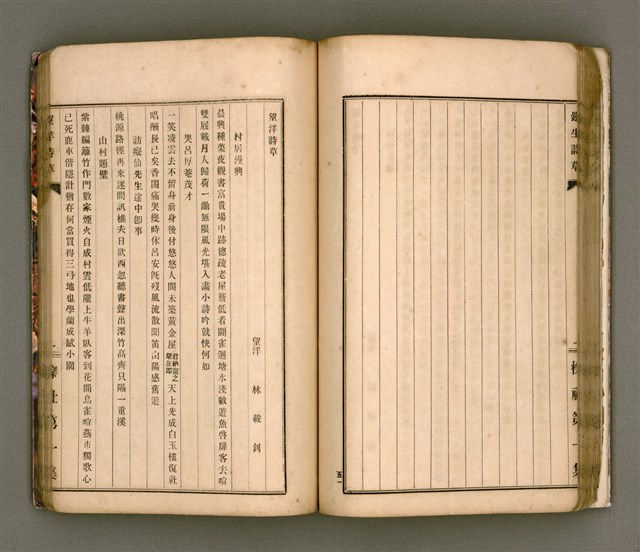 錬生詩草
櫟社第一集
望洋詩草
望洋 林載釗
村居漫興
晨興種菜夜觀書富貴場中跡總疏老屋簷低看鬪雀迴塘水淺數遊魚啓扉客去喧
雙屐戴月人歸荷一鋤無限風光堪入畫小詩吟就快何如
哭呂厚菴茂才
一笑凌雲去不留身前身後付悠悠人間未築黃金屋天上先成白玉樓復社
唱酬長已矣香閨痛哭幾時休呂安旣歿風流散聞笛山陽感舊遊
訪癡仙先生途中卽事
桃源路徑再來迷問訊樵夫日欲西忽聽書聲出深竹高齋只隔一重溪
山村題壁
紫棘編籬竹作門數家煙火自成村雲低隴上牛羊臥客到花間鳥雀喧燕市獨歌心
已死鹿車偕隱計猶存何當買得三弓地也學蘭成賦小園
望洋詩草
櫟社第一集
五一